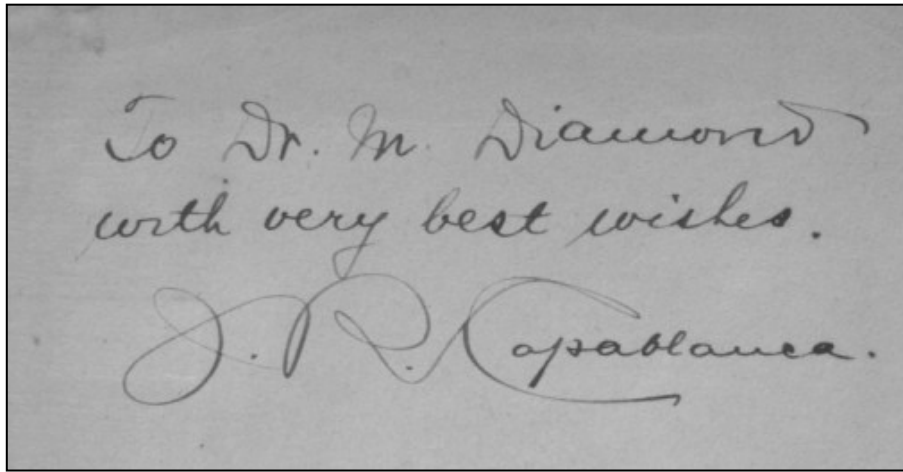 To Dr. M. Diamond
with very best wishes.
J. R. Capablanca.